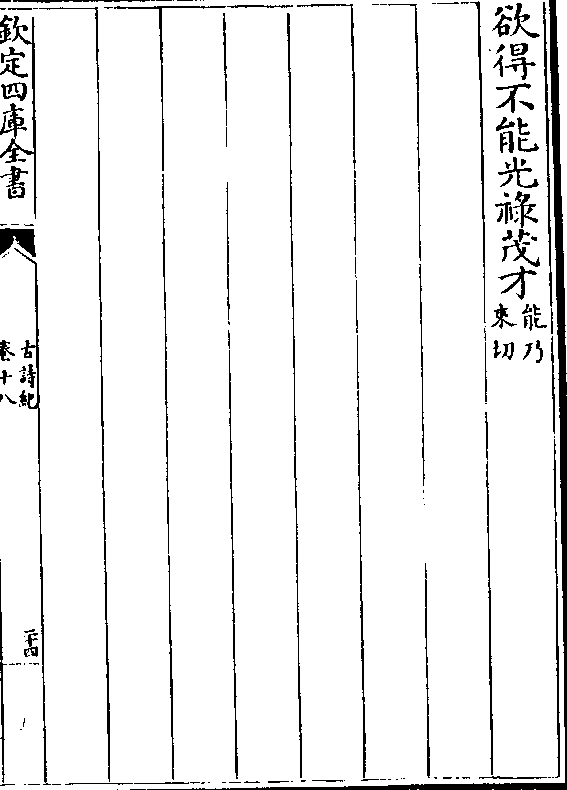 欲得不能光祿茂才能乃來切
欽定四庫全書
古詩紀
卷十八
二十四